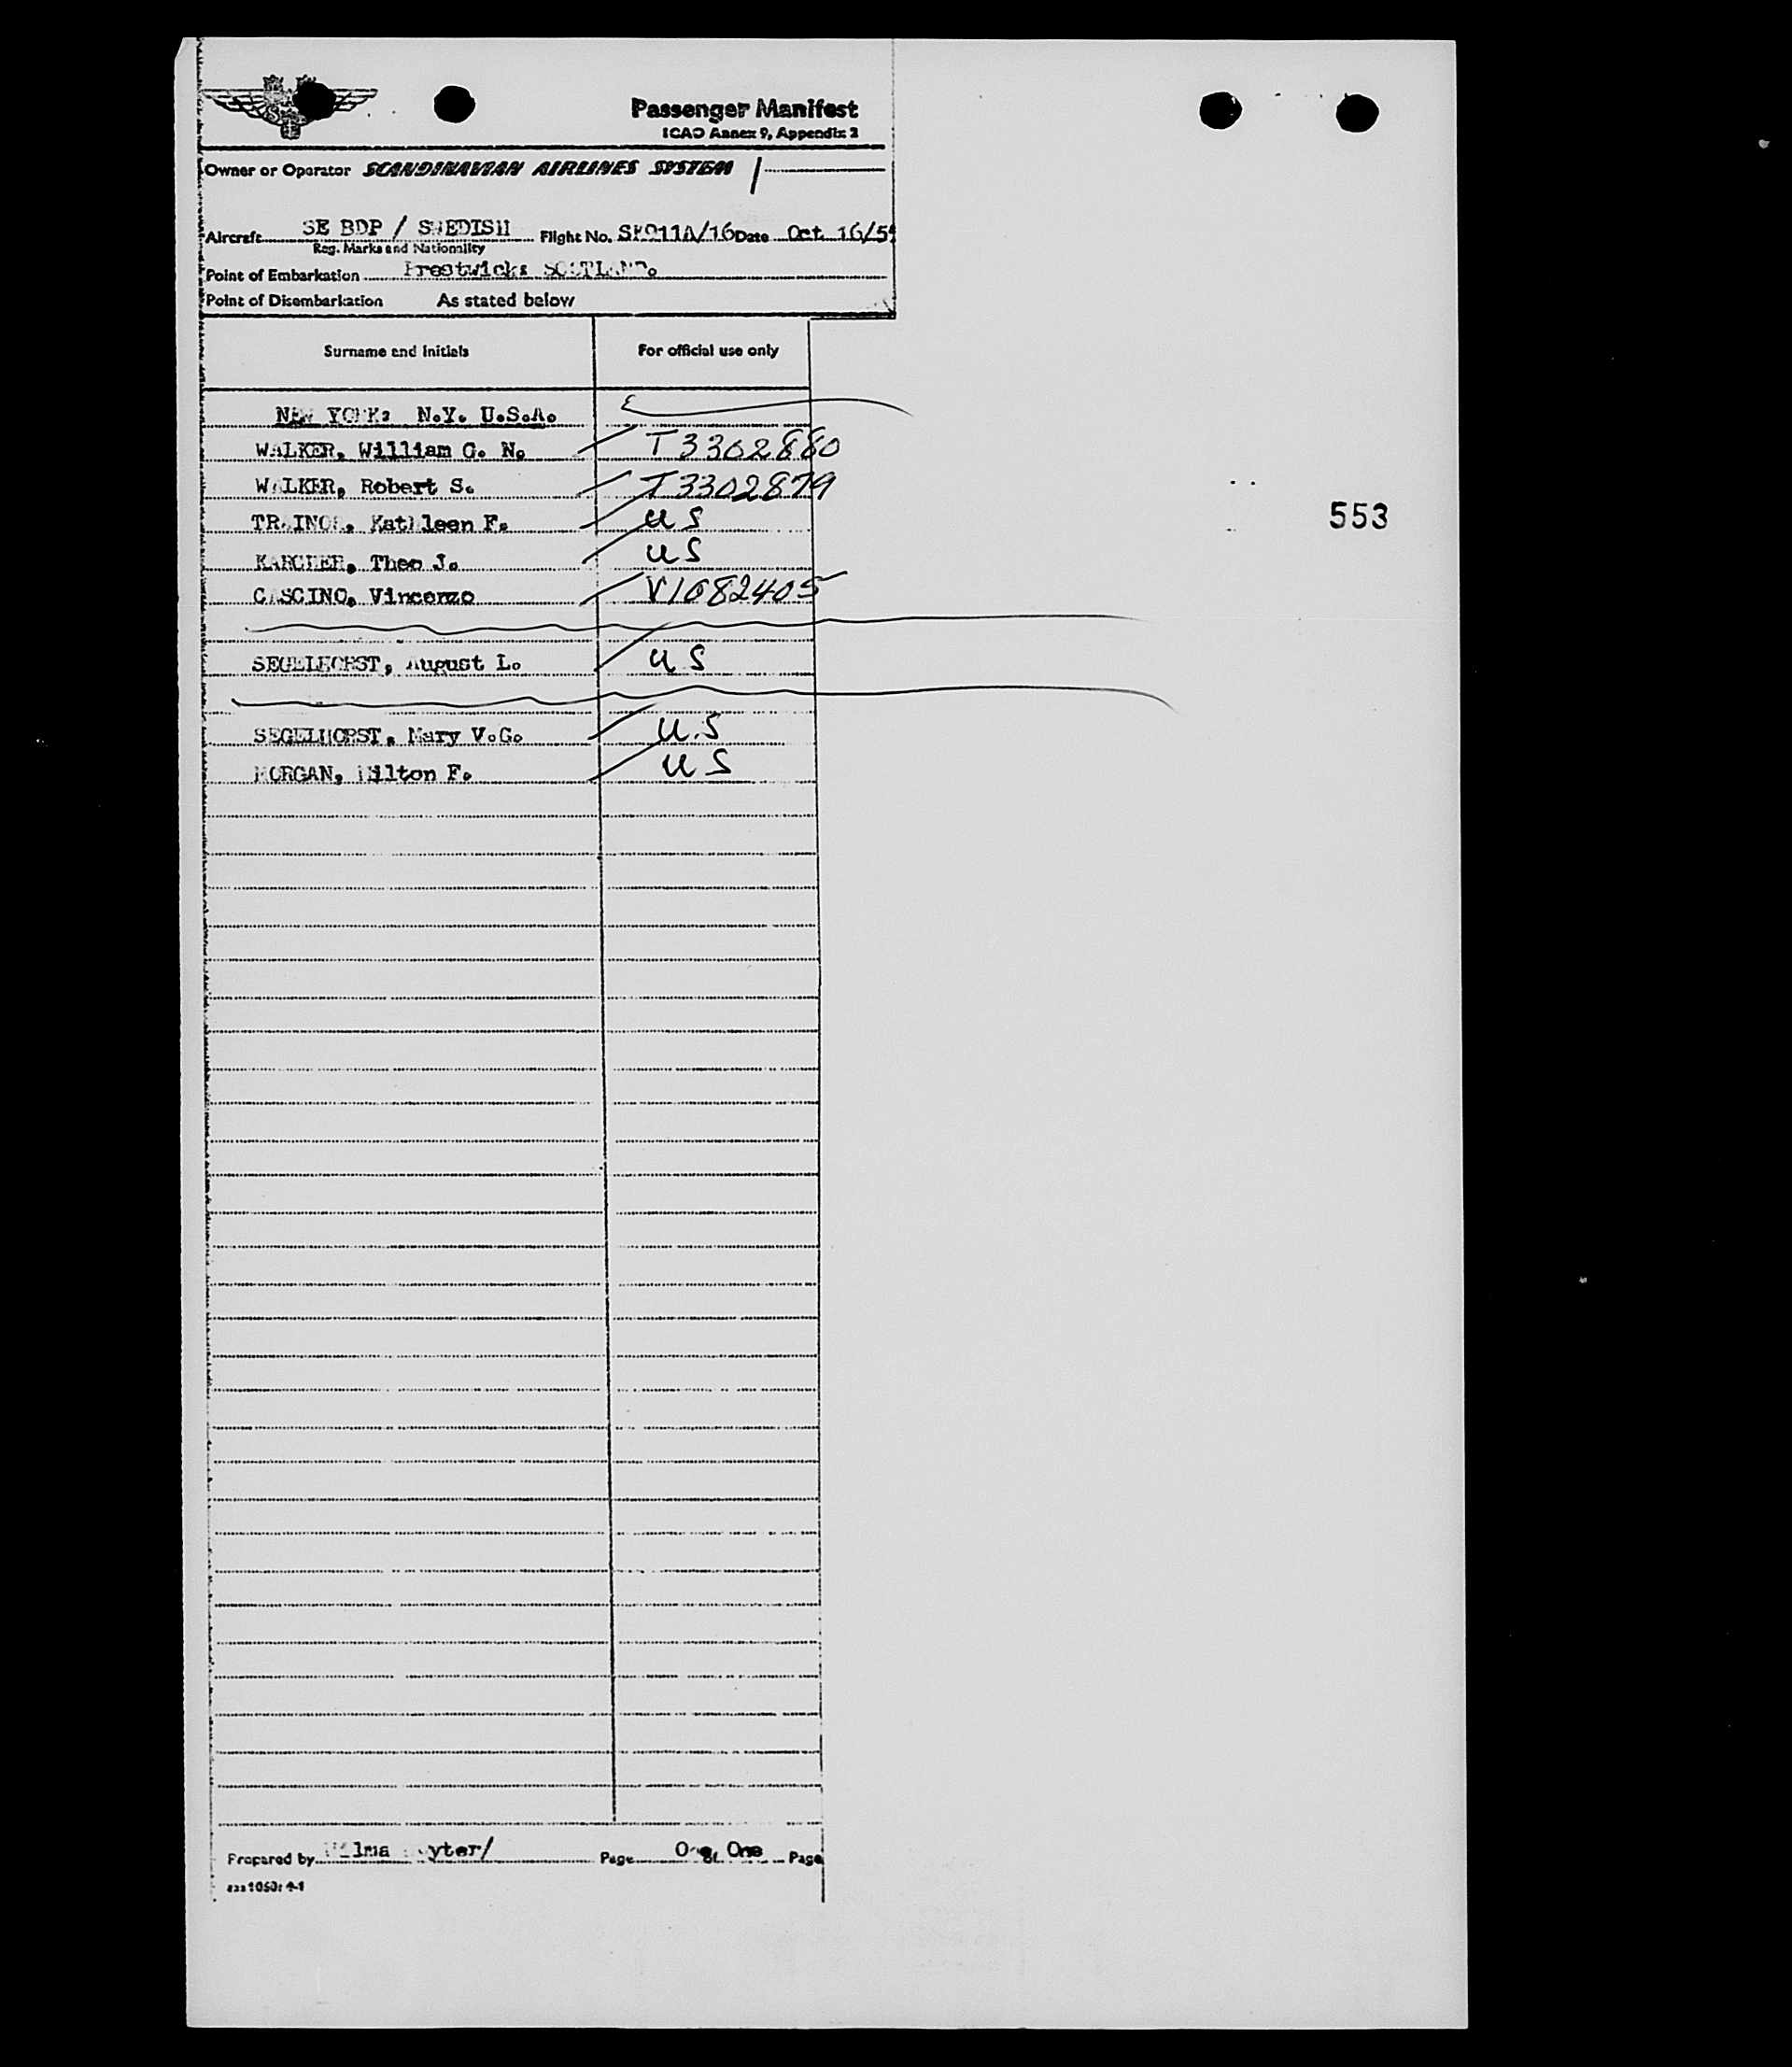 Passenger Manifest
ICAO Annex 9, Appendix 2
Owner or Operator SCANDINAVIAN AIRLINES SYSTEM
Aircraft SE BDP / SWEDISH Flight No. SK911A/16 Date Oct. 16/5
Reg. Marks and Nationality
Point of Embarkation Prestwick: SCOTLAND.
Point of Disembarkation As stated below
Surname and Initials For official use only
NEW YORK: N.Y. U.S.A.
WALKER, William G. N. T3302880
WALKER, Robert S. T3302879
TRAINOR, Kathleen F. US
KARCHER, Theo J. US
553
CASCINO, Vincenzo V1082405
SEGELHORST, August L. US
SEGELHORST, Mary V.G. U.S
MORGAN, Milton F. US
Prepared by Wilma Page One of One Page